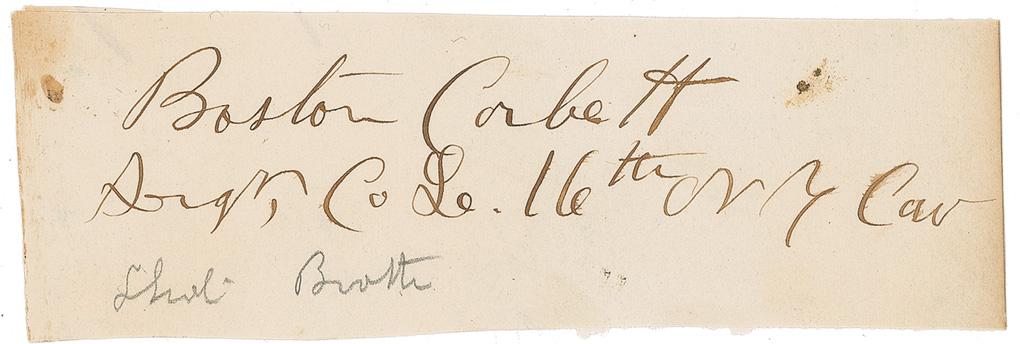 Boston Corbett
Sergt, Co L. 16th N Y Cav
Shot Booth